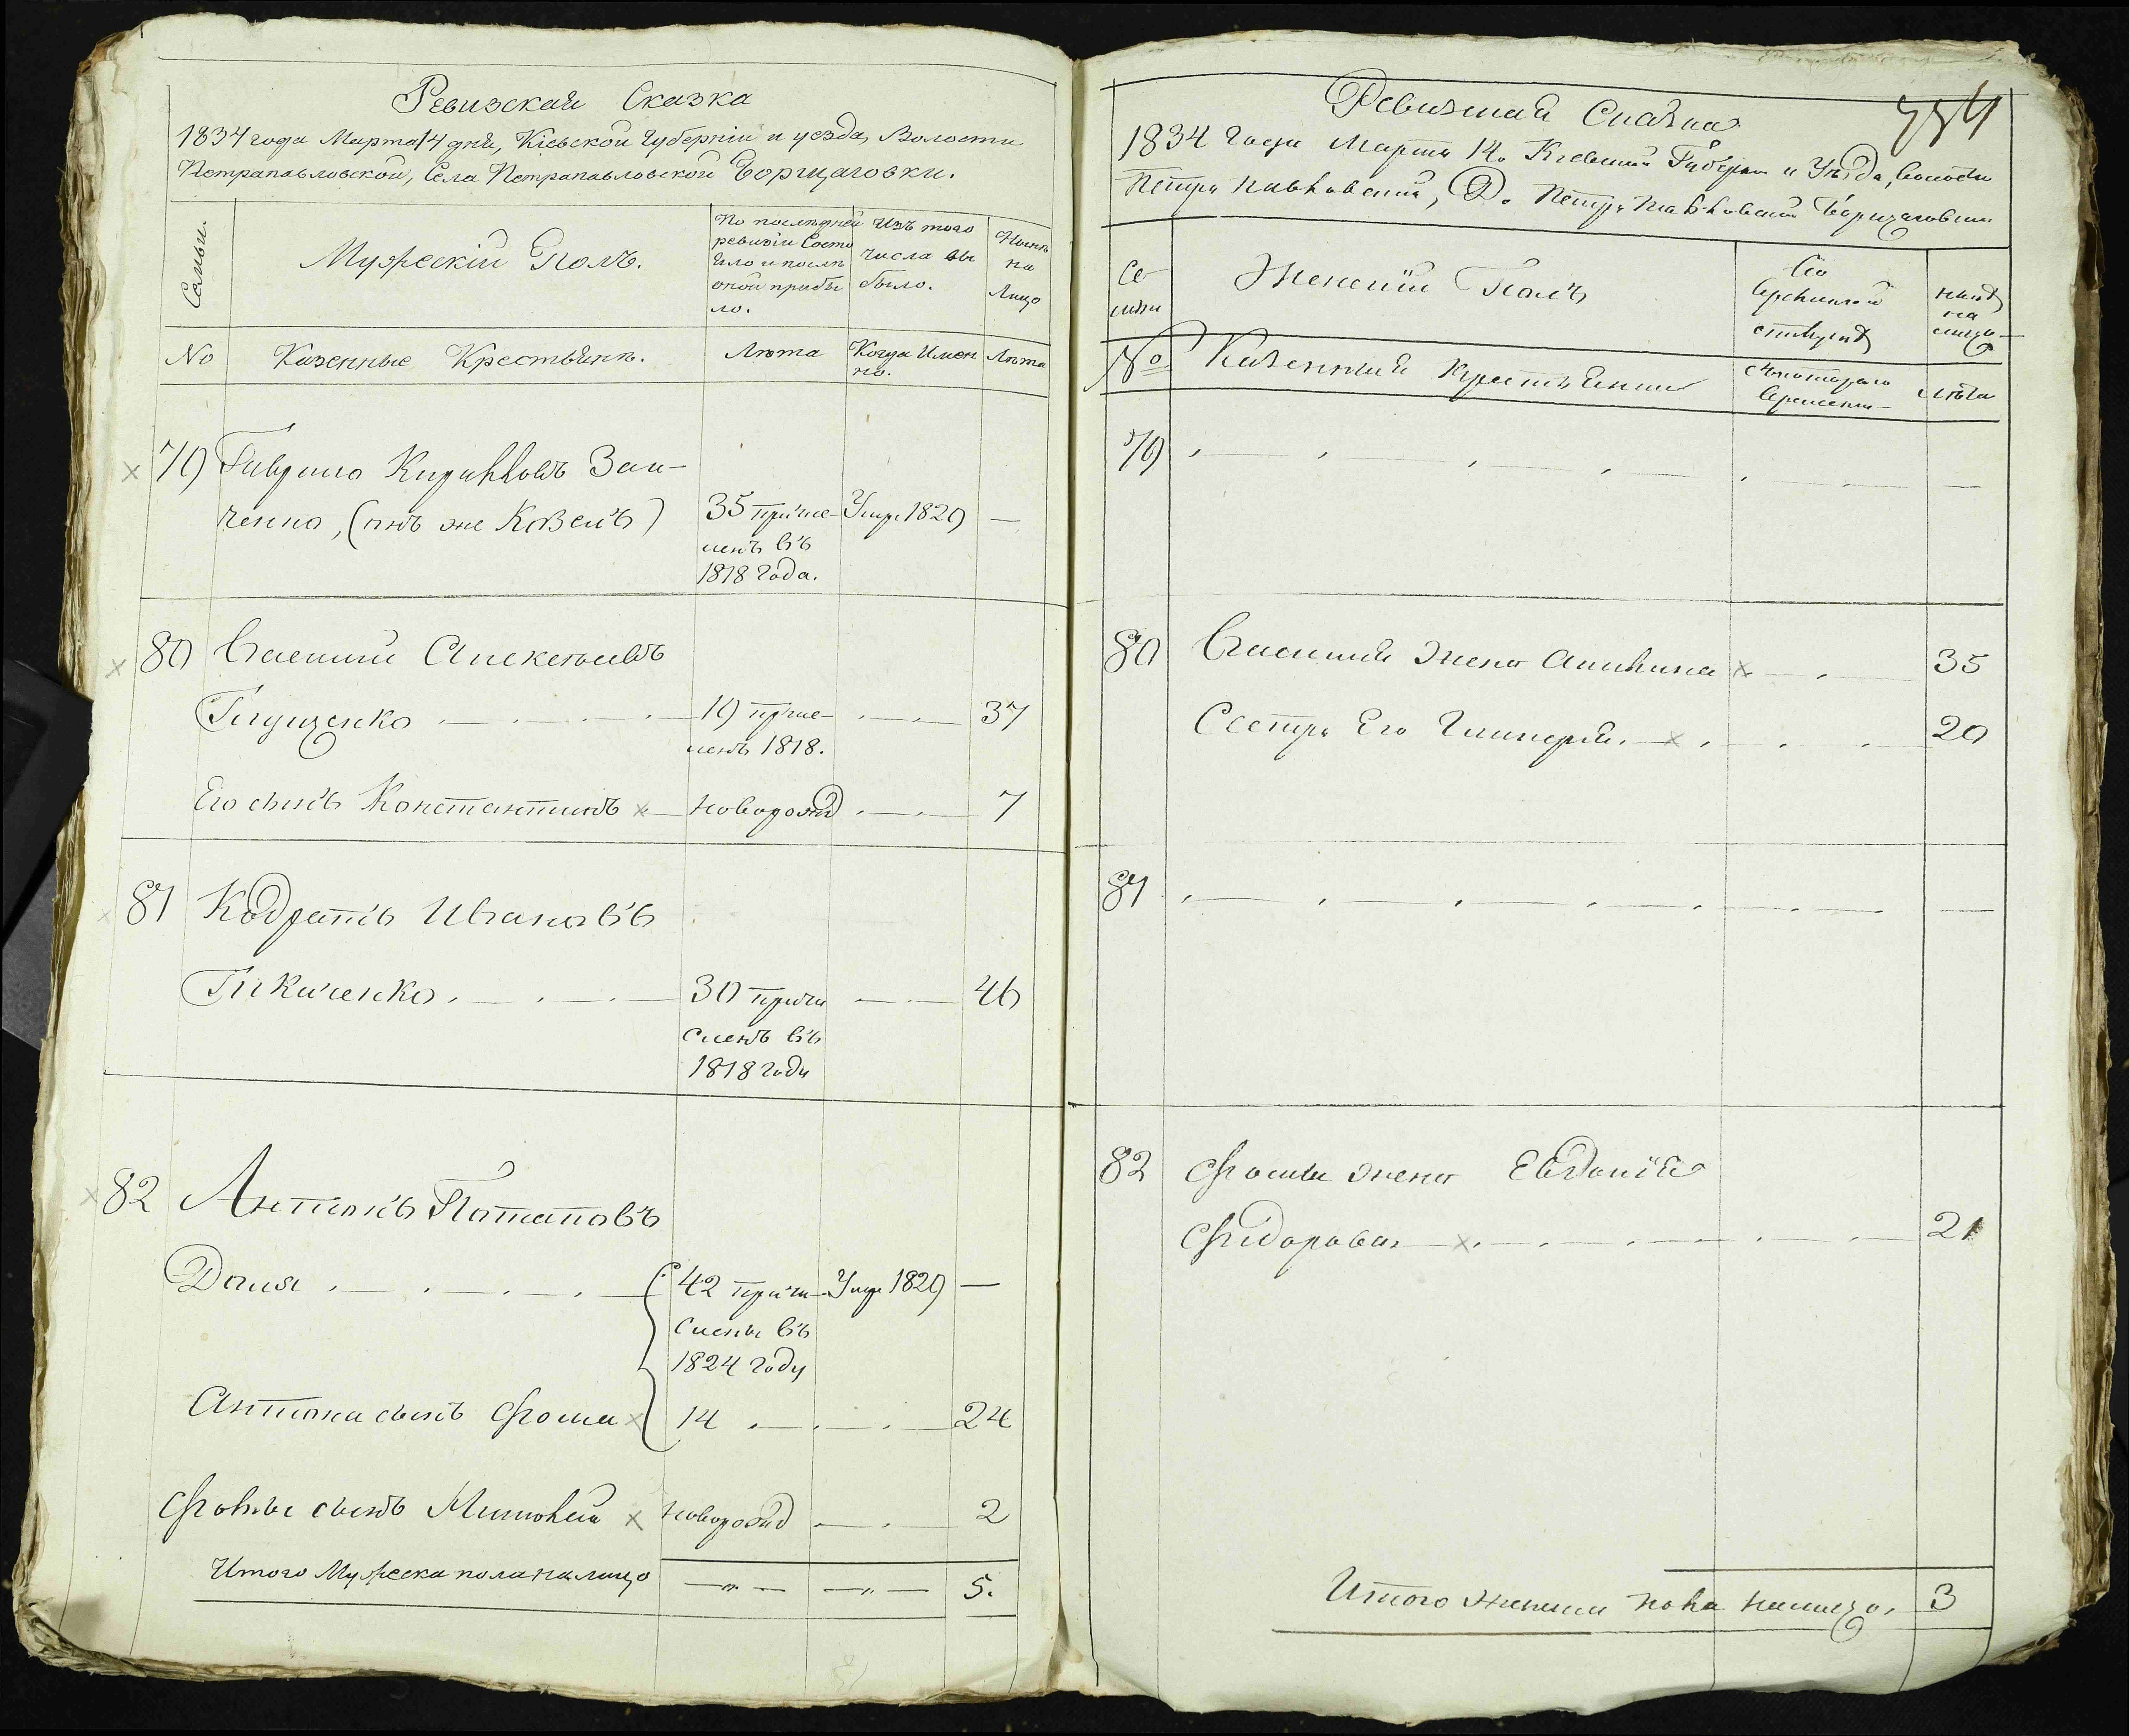 Ревизская Сказка
1834 года Марта 14 дня, Кіевской Губерніи и уезда, Волости
Петрапавловской, Села Петрапавловской Борщаговки.
Семьи.
Мужескій Полъ.
По последней
ревизіи Состо
яло и после
оной прибы
ло.
Изъ того
числа вы
было.
Ныне
на
Лицо
No
Казенные Крестьяне.
Лета
Когда Имен
но.
Лета
79 Гаврило Кириловъ Заи-
ченко, (онъ же Козелъ)
35 причи-
сленъ въ
1818 Года.
Умре 1829
—
80 Василий Алексеевъ
Глущенко
19 причи-
сленъ 1818.
37
Его сынъ Константинъ
Новорожд
7
81 Кодратъ Ивановъ
30 причи
сленъ въ
1818 Году
46
82 Антонъ Потаповъ
42 причи-
слены въ
1824 Году
Умре 1829
—
Антона сынъ Фома
14
24
Фомы сынъ Тимофей
Новорожд
2
Итого Мужеска пола на лицо
5.
Ревизская Сказка
1834 Года Марта 14. Киевской Губернии и Уезда, Волости
Петро Павловской, С. Петро Павловской Борщаговки
Се-
мьи
Женский Полъ
Во
Временной
отлучке
ныне
на
лицо
No
Казенные Крестьяне
С котораго
Времени
Лета
79
80 Василия Жена Акилина
35
Сестра Его Гликерия.
20
81
82 Фомы жена Евдокия
Фидорова
21
Итого Женска пола налицо.
3